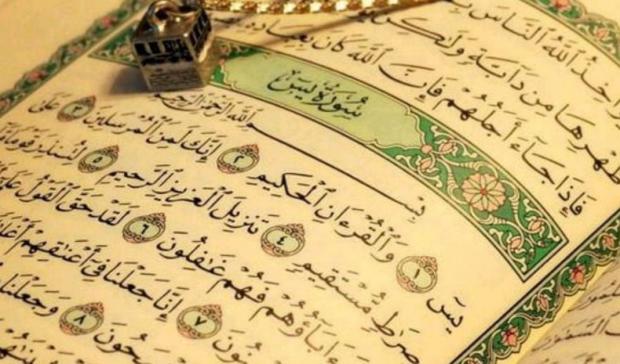 اللَّهُ النَّاسَ
ظَهْرِهَا مِن دَآبَّةٍ وَلَٰكِن
فَإِذَا جَآءَ أَجَلُهُمْ فَإِنَّ اللَّهَ كَانَ
سُورَةُ يسٓ
بِسْمِ اللَّهِ الرَّحْمَٰنِ الرَّحِيمِ
يسٓ ١ وَالْقُرْءَانِ الْحَكِيمِ ٢ إِنَّكَ لَمِنَ الْمُرْسَلِينَ ٣ عَلَىٰ
صِرَٰطٍ مُّسْتَقِيمٍ ٤ تَنزِيلَ الْعَزِيزِ الرَّحِيمِ ٥ لِتُنذِرَ قَوْمًا
ءَابَآؤُهُمْ فَهُمْ غَٰفِلُونَ ٦ لَقَدْ حَقَّ الْقَوْلُ
٧ إِنَّا جَعَلْنَا فِىٓ أَعْنَٰقِهِمْ
٨ وَجَعَلْنَا